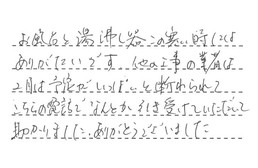 お風呂と湯沸し器この寒い時には
ありがたいです 他の工事の業者は
2月は予定がいっぱいと断わられて
こちらの電話でなんとか引き受けていただいて
助かりました。ありがとうございました